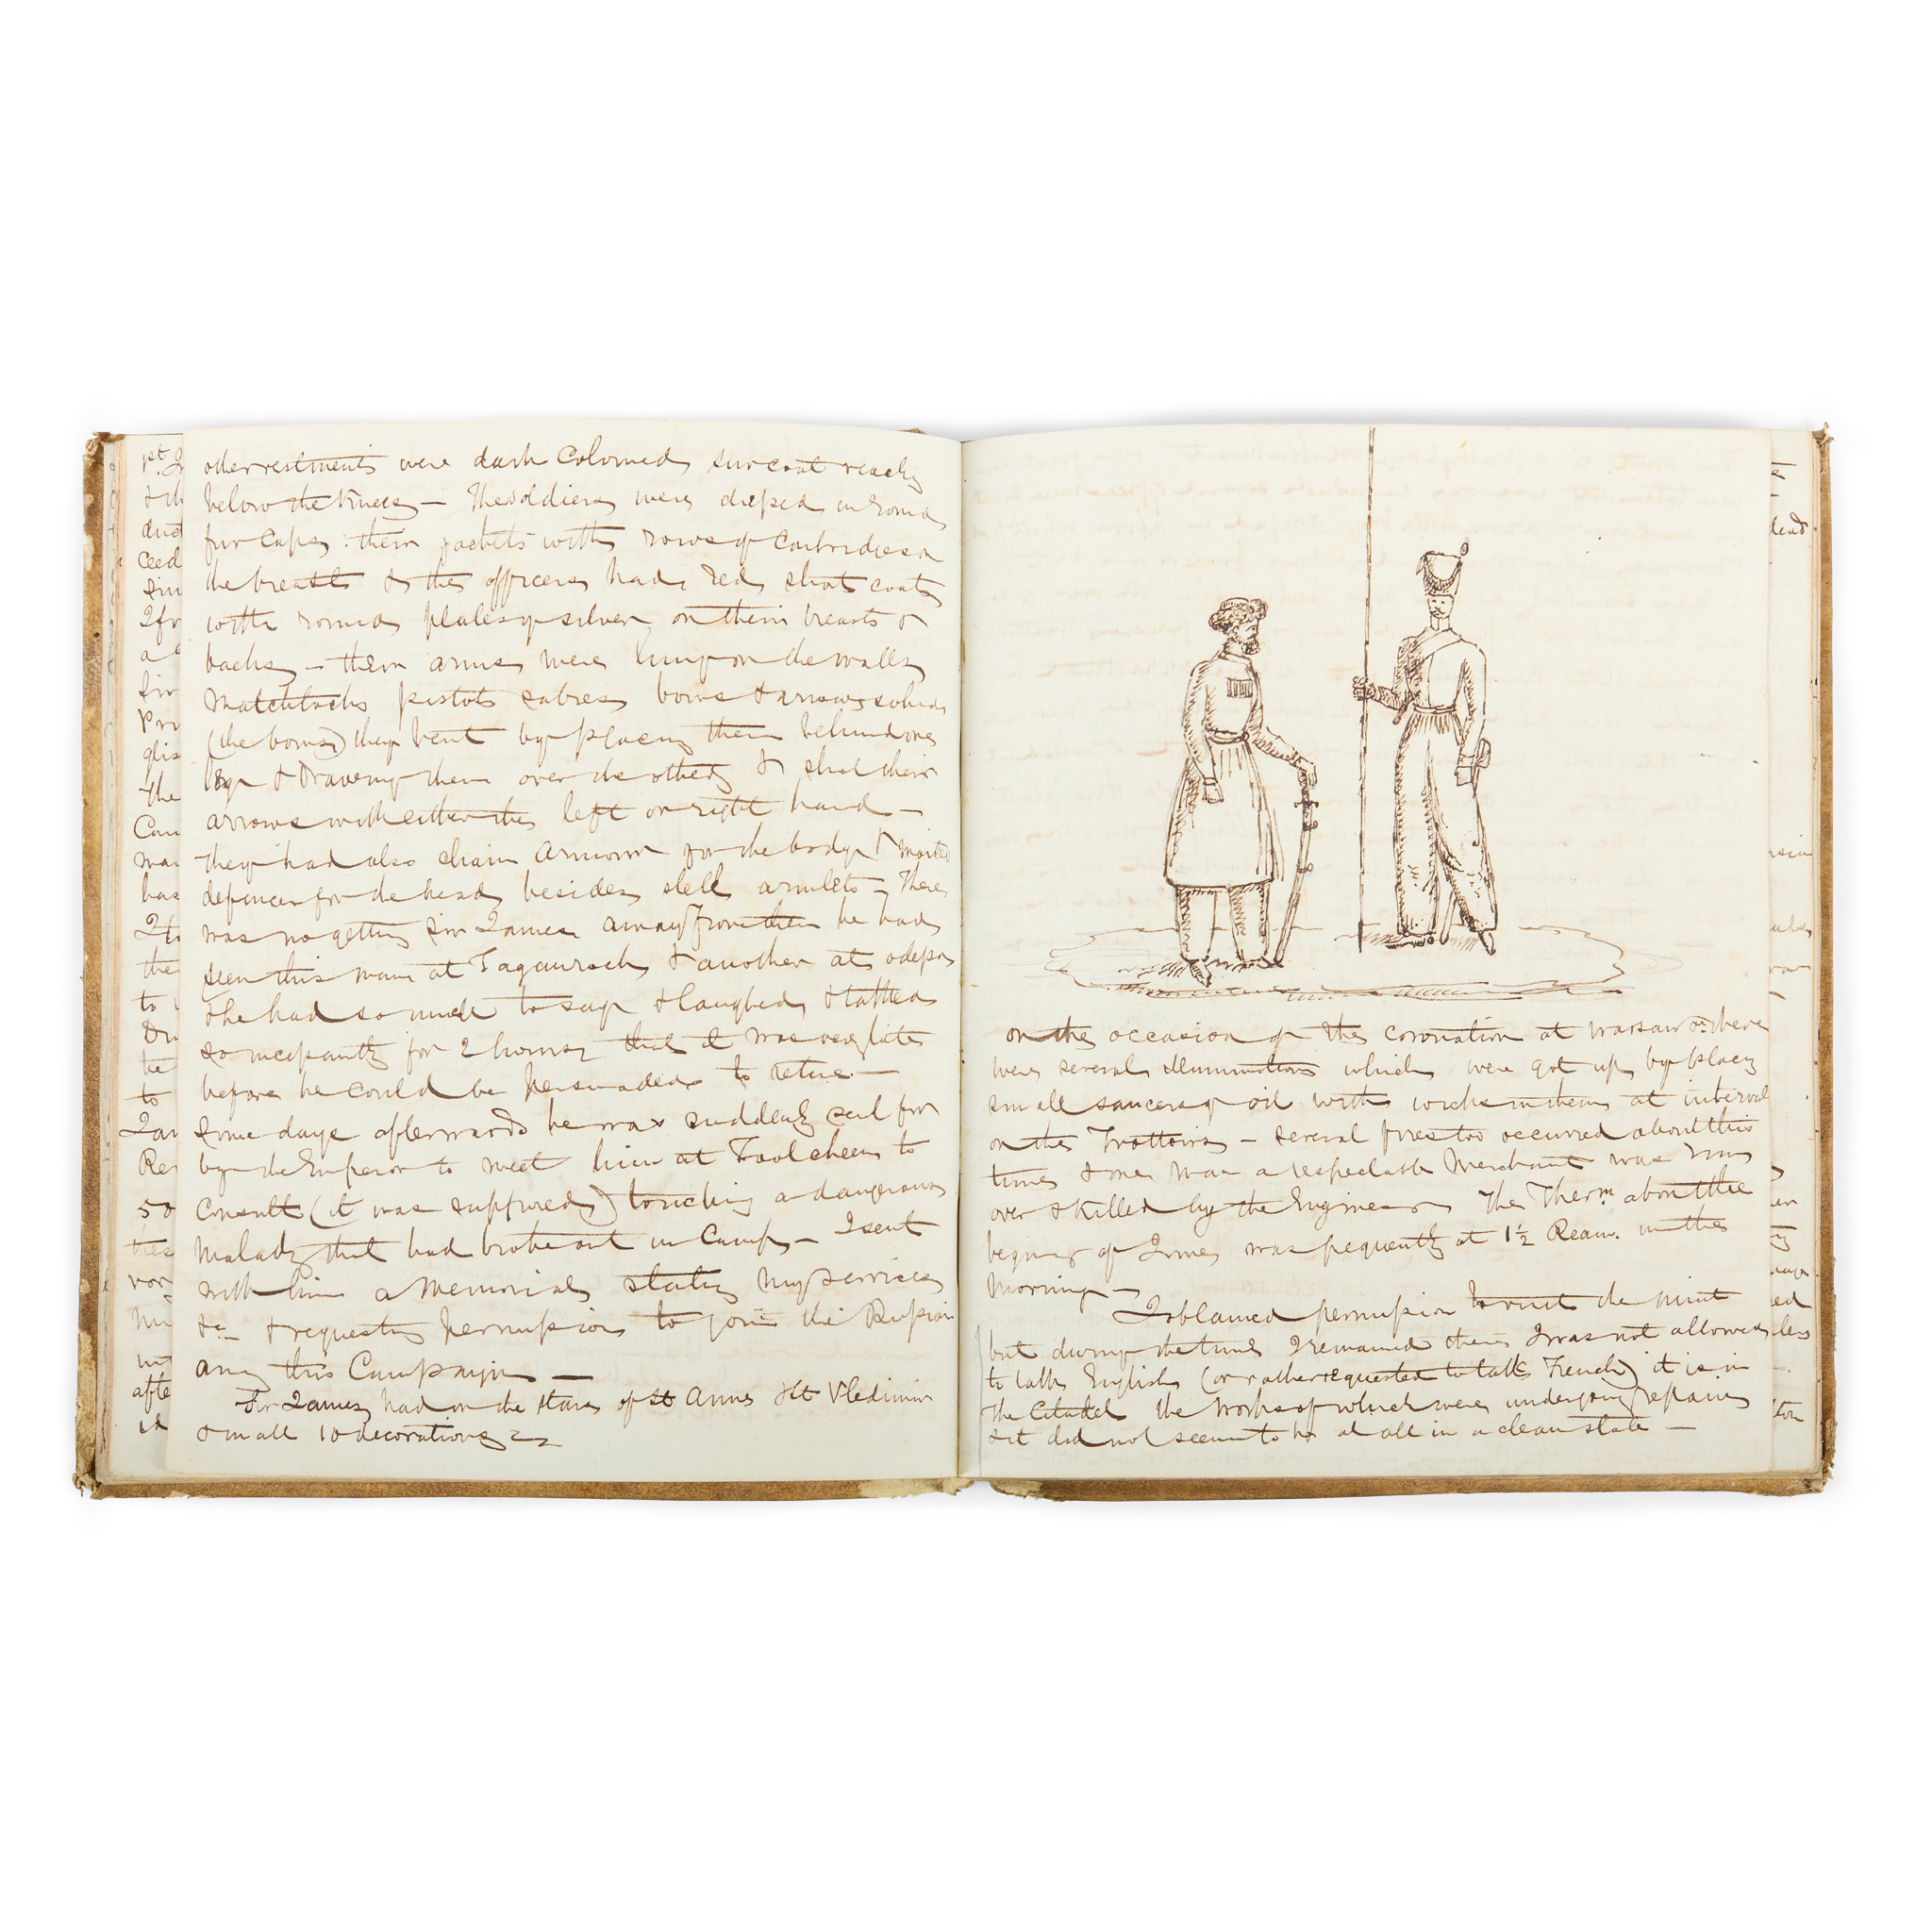 other vestments were dark Coloured surcoat reachg
below the Knees — The soldiers were dressed in round
fur Caps, their jackets with rows of Cartridges on
the breast & the officers had red short coats
with round plates of silver on their breasts &
backs — their arms were hung on the walls
Matchlocks pistols sabres bows & arrows which
(the bows) they bent by placing them behind one
leg & drawing them over the other & shot their
arrows with either the left or right hand —
they had also chain Armour for the body & mailed
defences for the head besides steel armlets — There
was no getting Sir James away from them he had
seen this man at Taganroch & another at odessa
& he had so much to say & laughed & talked
so incessantly for 2 hours that it was very late
before he could be persuaded to retire —
Some days afterwards he was suddenly sent for
by the Emperor to meet him at Toolcheen to
Consult (it was supposed) touching a dangerous
Malady that had broke out in Camp — I sent
with him a Memorial stating my services
&c — & requesting permission to join the Russian
army this Campaign —
Sir James had on the stars of St Anne & St Vledimir
& in all 10 decorations
on the occasion of the coronation at Warsaw there
were several illuminations which were got up by placg
small saucers of oil with wicks in them at interval
on the Trottoirs — several fires too occurred about this
time & one man a respectable Merchant was run
over & killed by the Engines The Therm about the
beginng of June was frequently at 1½ Reau. in the
Morning —
I obtained permission to visit the mint
but during the time I remained there I was not allowed
to talk English (or rather requested to talk French) it is in
The Citadel the works of which were undergoing repairs
& it did not seem to be at all in a clean state —